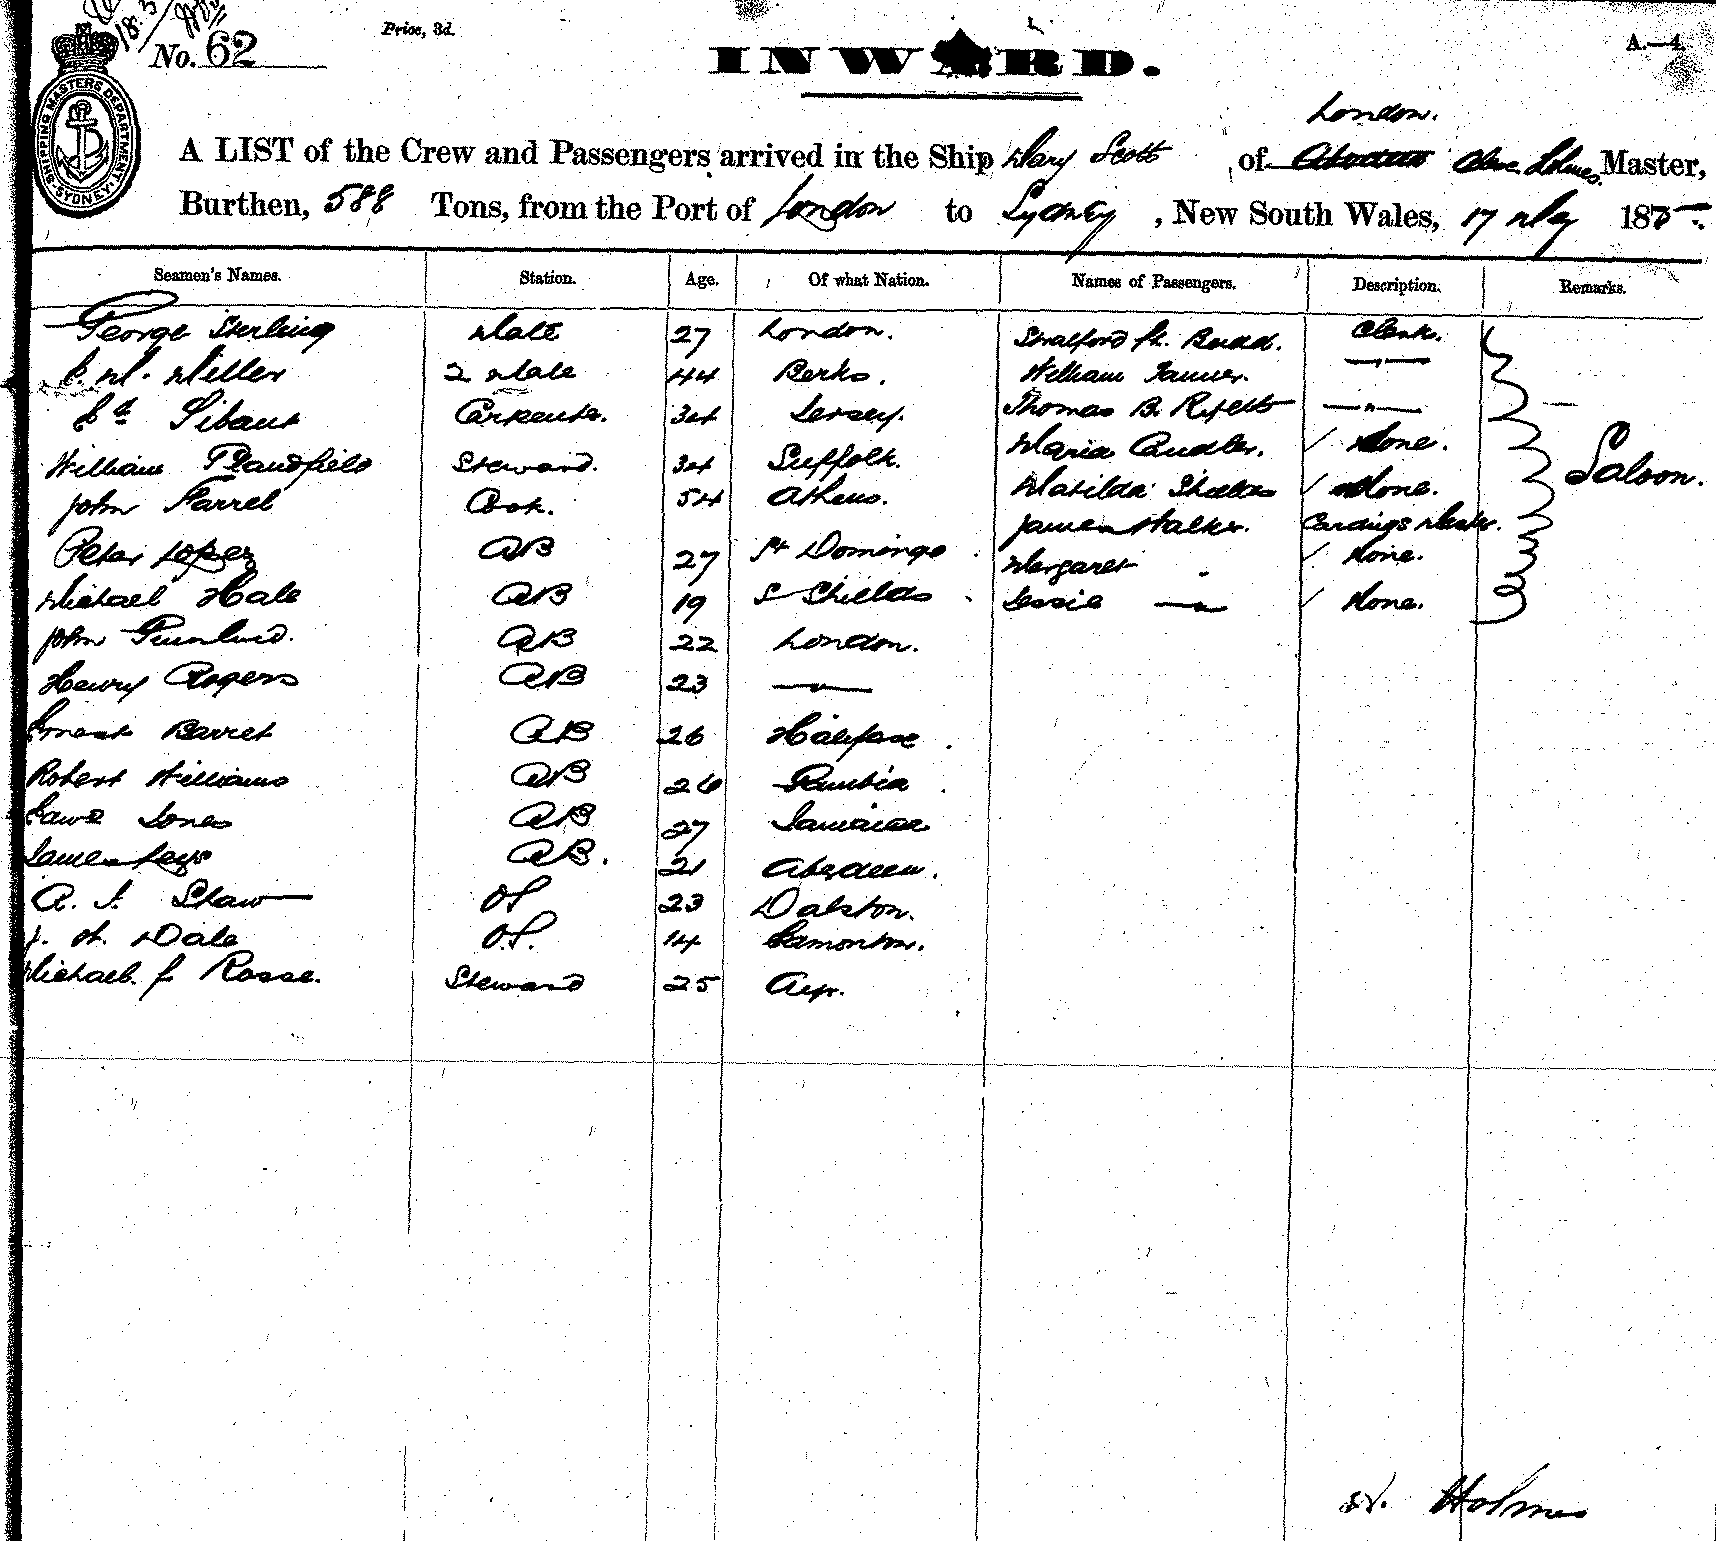 No. 62
Price, 3d.
INWARD.
A.—4.
SHIPPING MASTERS DEPARTMENT SYDNEY
London.
A LIST of the Crew and Passengers arrived in the Ship Mary Scott of Holmes Master,
Burthen, 588 Tons, from the Port of London to Sydney, New South Wales, 17 May 1875.
Seamen's Names. Station. Age. Of what Nation. Names of Passengers. Description. Remarks.
George Sterling Mate 27 London. Budd. Clerk.
Miller 2 Mate 44 Berks. William —"—
Carpenter. 34 Jersey. Thomas B. —"—
William 34 Steward. Suffolk. Maria Candler. None.
John Farrel Cook. 54 Athens. Matilda Shields None. Saloon.
James Walker.
Peter Lopez AB 27 St Domingo Margaret " None.
Michael Hale AB 19 S Shields Jessie —"— None.
John AB 22 London.
Henry Rogers AB 23 —"—
Ernest Barret AB 26 Halifax.
Robert Williams AB 26 Gambia
Jones AB 27 Jamaica
James Keys AB. 21 Aberdeen.
A. J. Shaw OS 23 Dalston.
J. W. Dale O.S. 14 Edmonton.
Michael J Rosse. Steward 25 Ayr.
Holmes